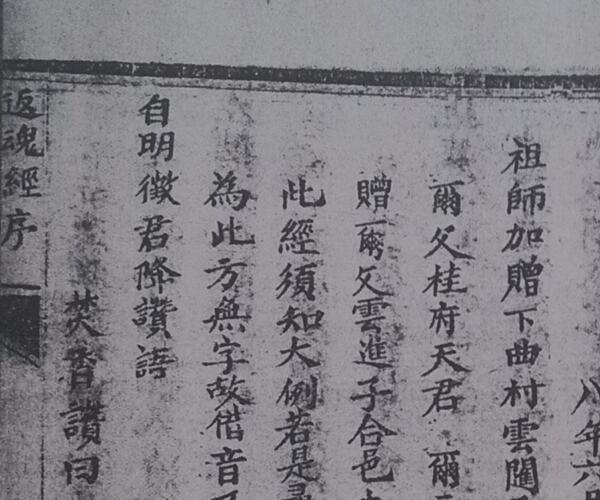 八年六月
祖師加贈下曲村雲闔
爾父桂府天君 爾
贈爾父雲進子合邑
此經須知大例若是
為此方無字故借音
自明徵君降讚語
焚香讚曰
返魂經序